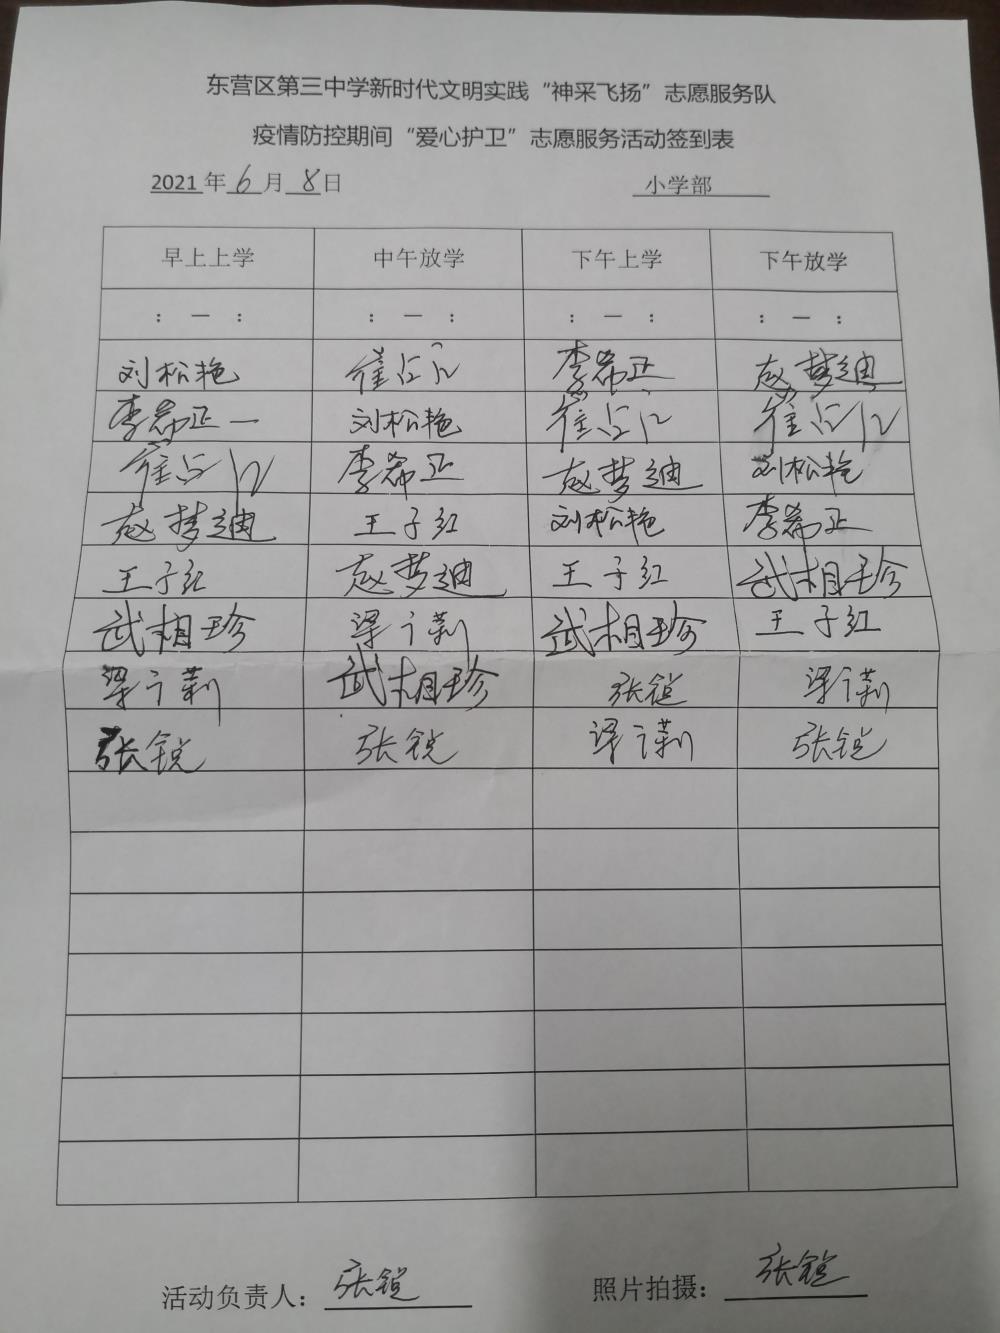 东营区第三中学新时代文明实践“神采飞扬”志愿服务队
疫情防控期间“爱心护卫”志愿服务活动签到表
2021 年 6 月 8 日 小学部
早上上学 中午放学 下午上学 下午放学
: — : : — : : — : : — :
刘松艳 崔 李希正 赵梦迪
李希正 刘松艳 崔 崔
崔 李希正 赵梦迪 刘松艳
赵梦迪 王子红 刘松艳 李希正
王子红 赵梦迪 王子红 武相珍
武相珍 梁 莉 武相珍 王子红
梁 莉 武相珍 张锐 梁 莉
张锐 张锐 梁 莉 张锐
活动负责人： 张锐 照片拍摄： 张锐